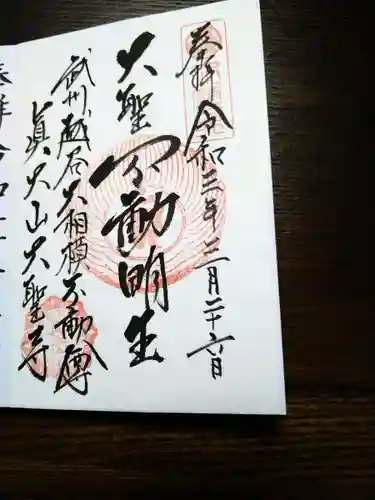 奉拝 令和三年三月二十六日
大聖不動明王
武州越谷大相模不動尊
真大山大聖寺
奉拝 令和